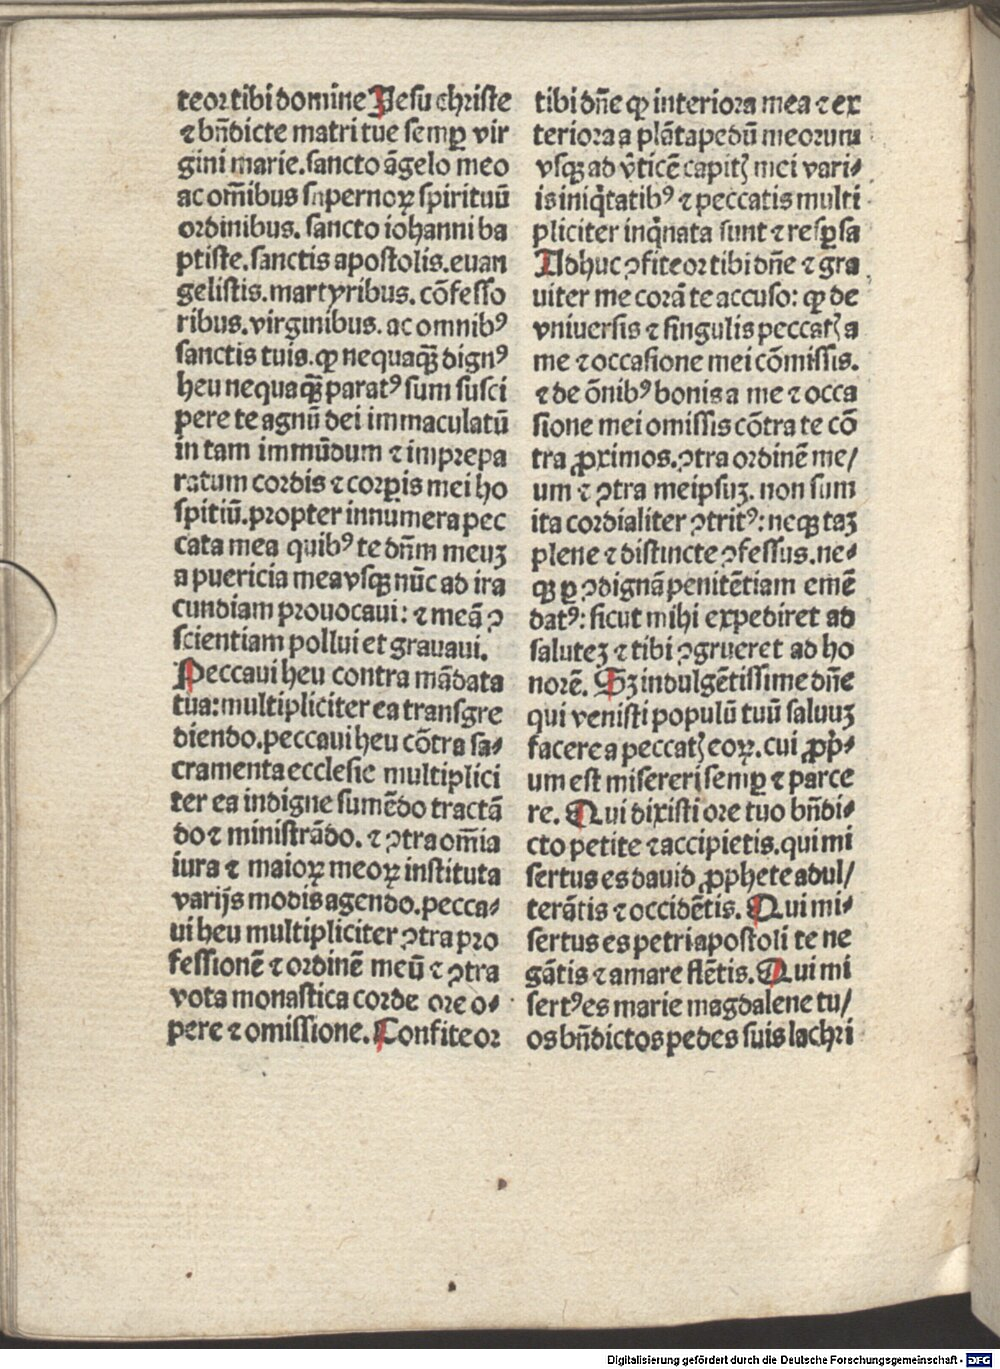 teor tibi domine Jesu christe
⁊ bn̄dicte matri tue semꝑ vir
gini marie. sancto āgelo meo
ac om̄ibus supernoꝝ spirituū
ordinibus. sancto iohanni ba
ptiste. sanctis apostolis. euan
gelistis. martyribus. cōfesso
ribus. virginibus. ac omnibꝰ
sanctis tuis. ꝙ nequaqȝ̄ dignꝰ
heu nequaqȝ̄ paratꝰ sum susci
pere te agnū dei immaculatū
in tam immūdum ⁊ imprepa
ratum cordis ⁊ corꝑis mei ho
spitiū. propter innumera pec
cata mea quibꝰ te dn̄m meuȝ
a puericia mea vsqȝ nūc ad ira
cundiam prouocaui: ⁊ meā ꝯ
scientiam pollui et grauaui.
Peccaui heu contra mādata
tua: multipliciter ea transgre
diendo. peccaui heu cōtra sa⸗
cramenta ecclesie multiplici
ter ea indigne sumēdo tractā
do ⁊ ministrādo. ⁊ ꝯtra om̄ia
iura ⁊ maioꝝ meoꝝ instituta
varijs modis agendo. pecca⸗
ui heu multipliciter ꝯtra pro
fessionē ⁊ ordinē meū ⁊ ꝯtra
vota monastica corde ore o⸗
pere ⁊ omissione. Confiteor
tibi dn̄e ꝙ interiora mea ⁊ ex
teriora a plāta pedū meorum
vsqȝ ad v̄ticē capitꝭ mei vari⸗
is iniq̄tatibꝰ ⁊ peccatis multi
pliciter inq̄nata sunt ⁊ resꝑsa
Adhuc ꝯfiteor tibi dn̄e ⁊ gra
uiter me corā te accuso: ꝙ de
vniuersis ⁊ singulis peccatꝭ a
me ⁊ occasione mei cōmissis.
⁊ de ōnibꝰ bonis a me ⁊ occa
sione mei omissis cōtra te cō
tra ꝓximos. ꝯtra ordinē me/
um ⁊ ꝯtra meipsuȝ. non sum
ita cordialiter ꝯtritꝰ: neqȝ taȝ
plene ⁊ distincte ꝯfessus. ne⸗
qȝ ꝑ ꝯdignā penitētiam emē
datꝰ: sicut mihi expediret ad
saluteȝ ⁊ tibi ꝯgrueret ad ho
norē. Sȝ indulgētissime dn̄e
qui venisti populū tuū saluuȝ
facere a peccatꝭ eoꝝ. cui ꝓp̄⸗
um est misereri semꝑ ⁊ parce
re. Qui dixisti ore tuo bn̄di⸗
cto petite ⁊ accipietis. qui mi
sertus es dauid ꝓphete adul/
terātis ⁊ occidētis. Qui mi⸗
sertus es petri apostoli te ne
gātis ⁊ amare flētis. Qui mi
sertꝰ es marie magdalene tu/
os bn̄dictos pedes suis lachri
Digitalisierung gefördert durch die Deutsche Forschungsgemeinschaft - DFG